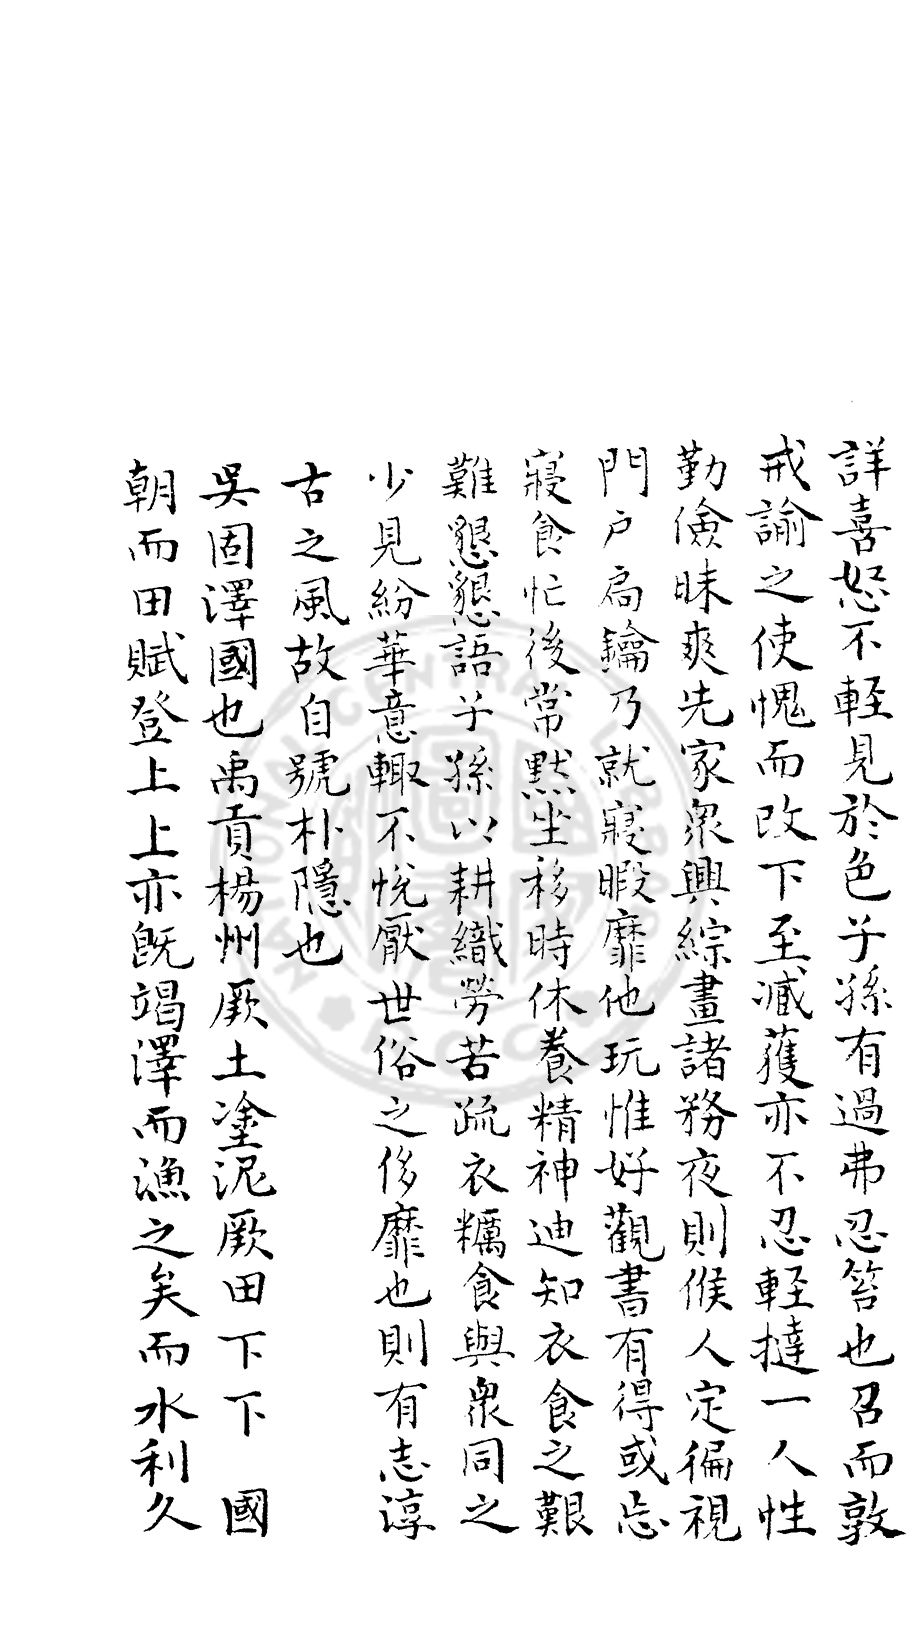 詳喜怒不輕見於色子孫有過弗忍笞也召而敦
戒諭之使愧而改下至臧獲亦不忍輕撻一人性
勤儉昧爽先家衆興綜畫諸務夜則候人定徧視
門戶扃鑰乃就寢暇靡他玩惟好觀書有得或忘
寢食忙後常默坐移時休養精神迪知衣食之艱
難懇懇語子孫以耕織勞苦疏衣糲食與衆同之
少見紛華意輙不悅厭世俗之侈靡也則有志淳
古之風故自號朴隱也
吳固澤國也禹貢楊州厥土塗泥厥田下下　國
朝而田賦登上上亦旣竭澤而漁之矣而水利久
NATIONAL CENTRAL LIBRARY